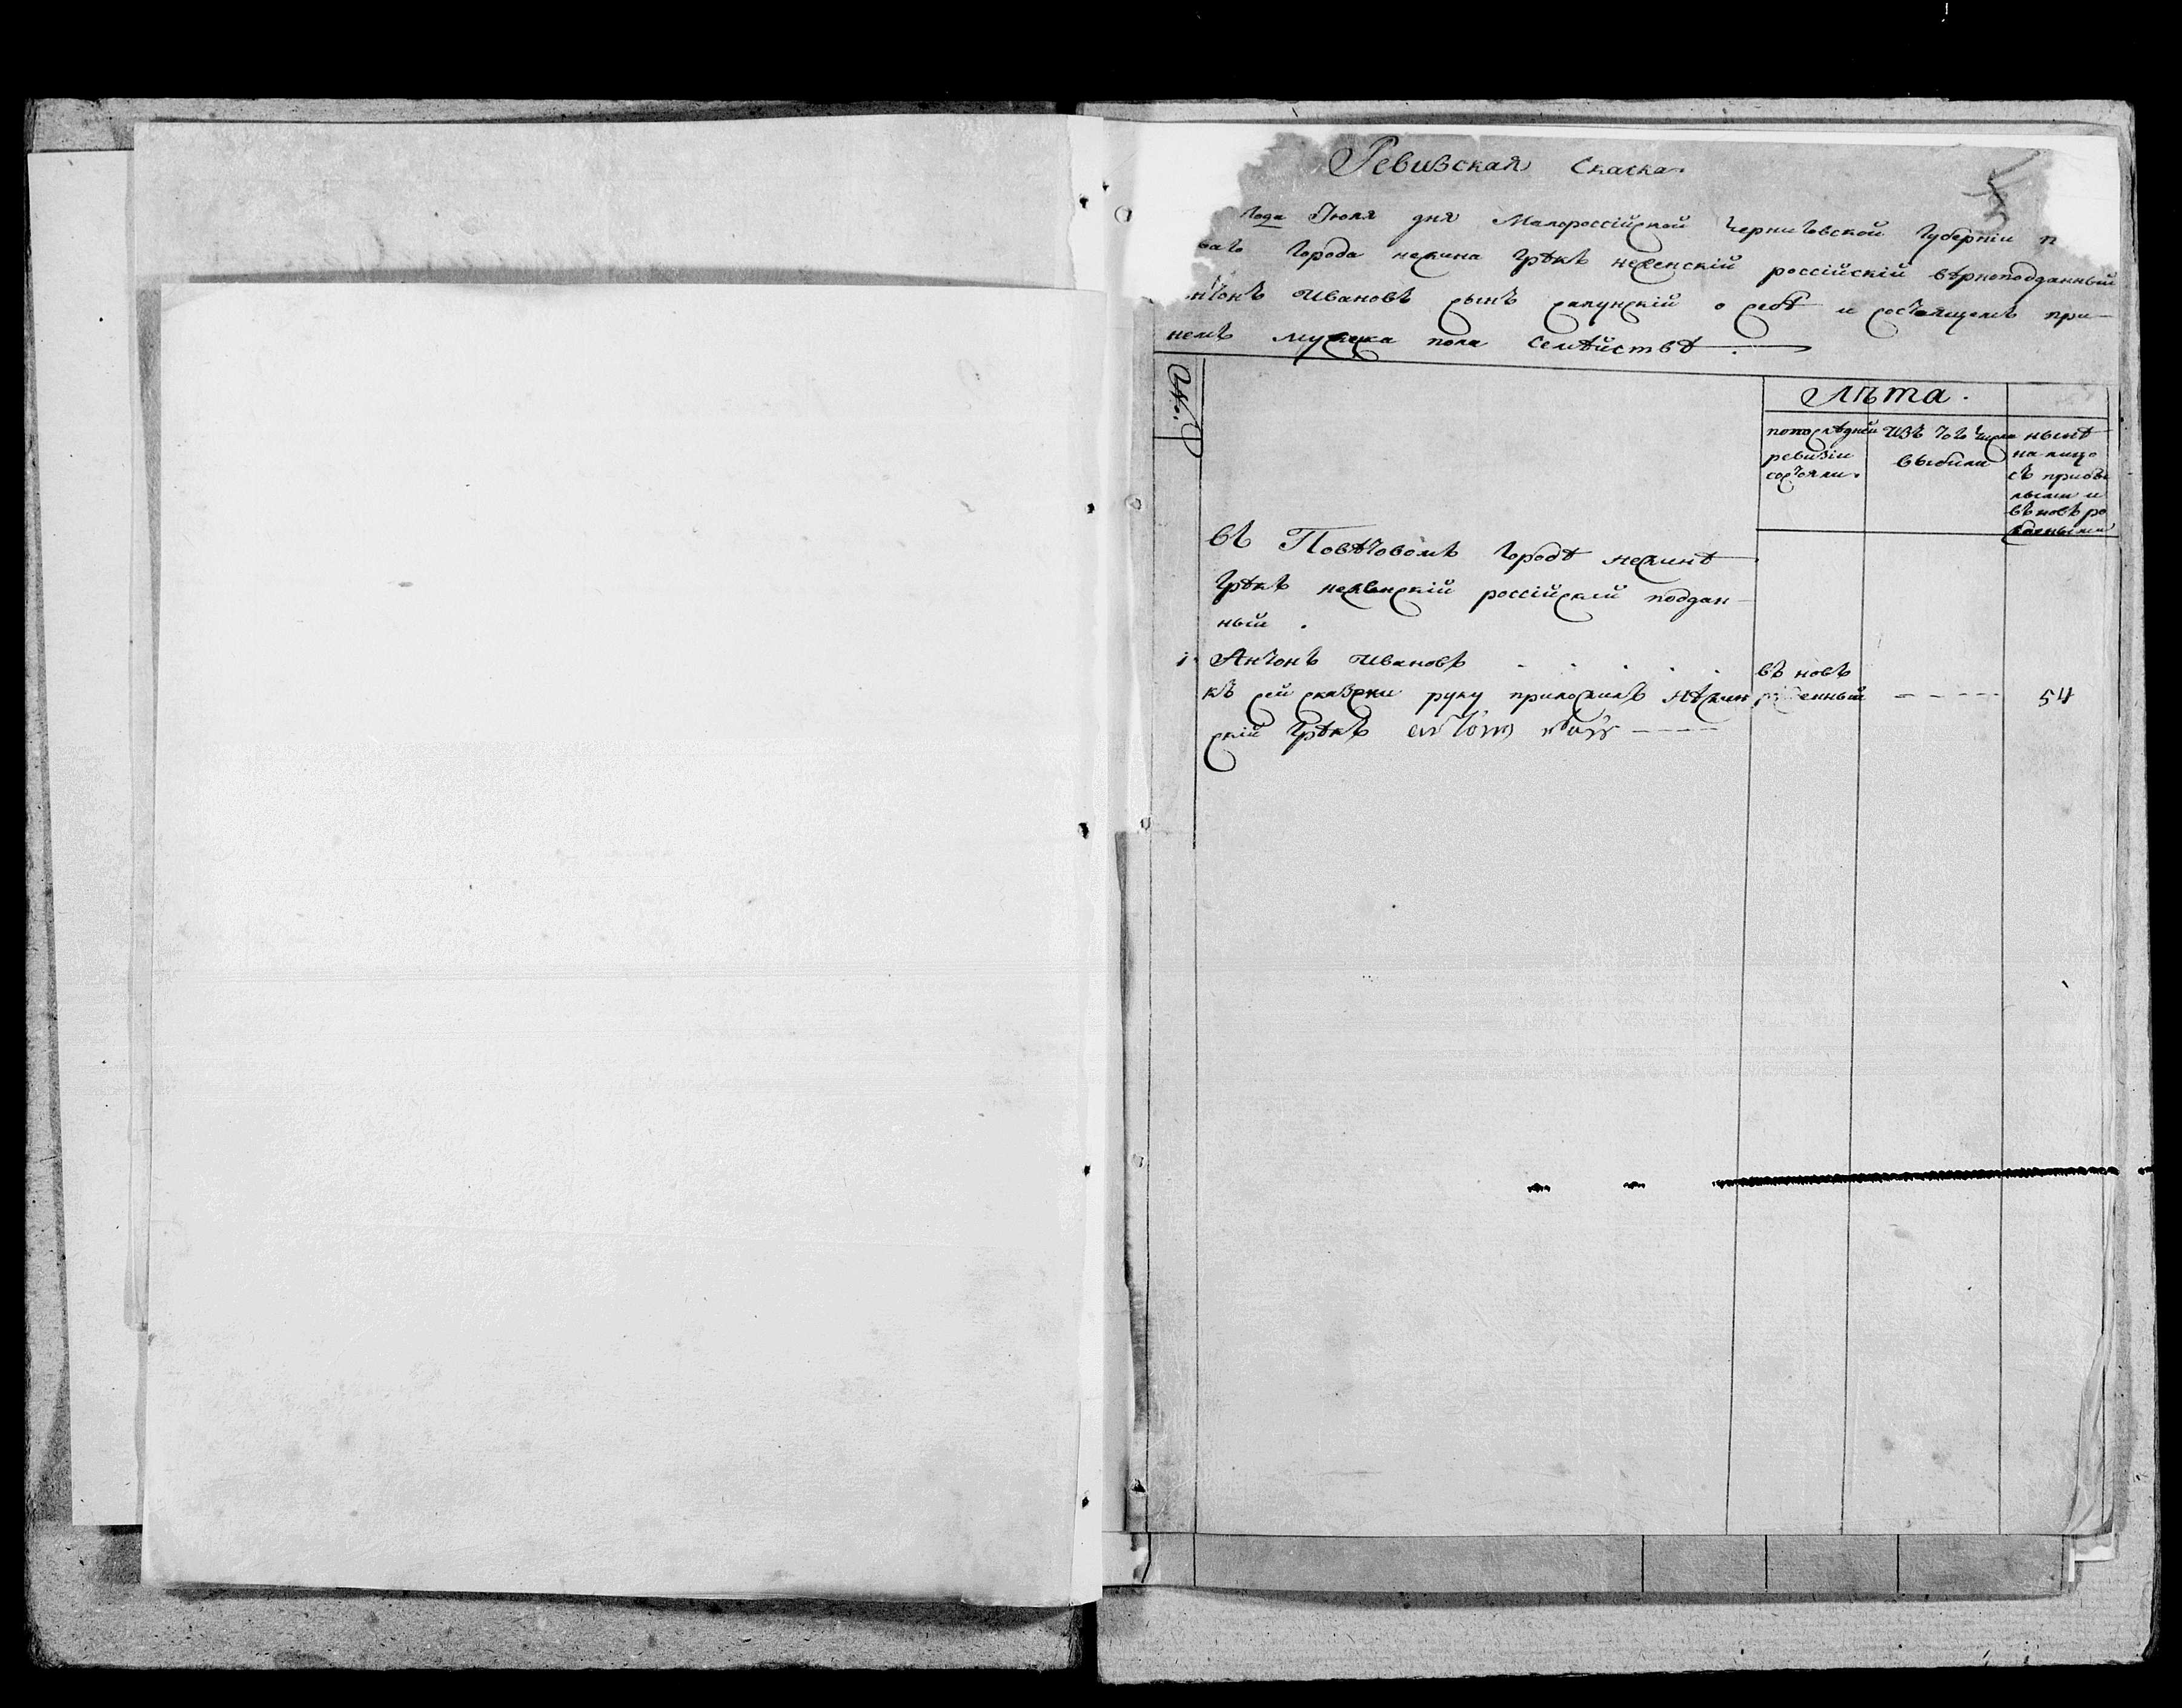 Ревизская Скаска
5
Года Июля дня Малороссійской Черниговской Губерніи п
Города нежина Грѣкъ неженскій россійскій вѣрноподданный
нтонъ Ивановъ сынъ о себѣ и состоящемъ при
немъ мужеска пола Семѣйствѣ
№.
Лѣта.
попослѣдней ревизіи состояли.
Изъ того числа выбили
нынѣ на лицо съ прибылыми и въ новь рожденными
въ Повѣтовомъ городѣ нежинѣ
Грѣкъ неженскій россійскій поддан
ный.
1. Антонъ Ивановъ . . . . . въ новь
къ сей скаски руку приложилъ Нѣжин рожденный - - - - - 54
скій Грѣкъ